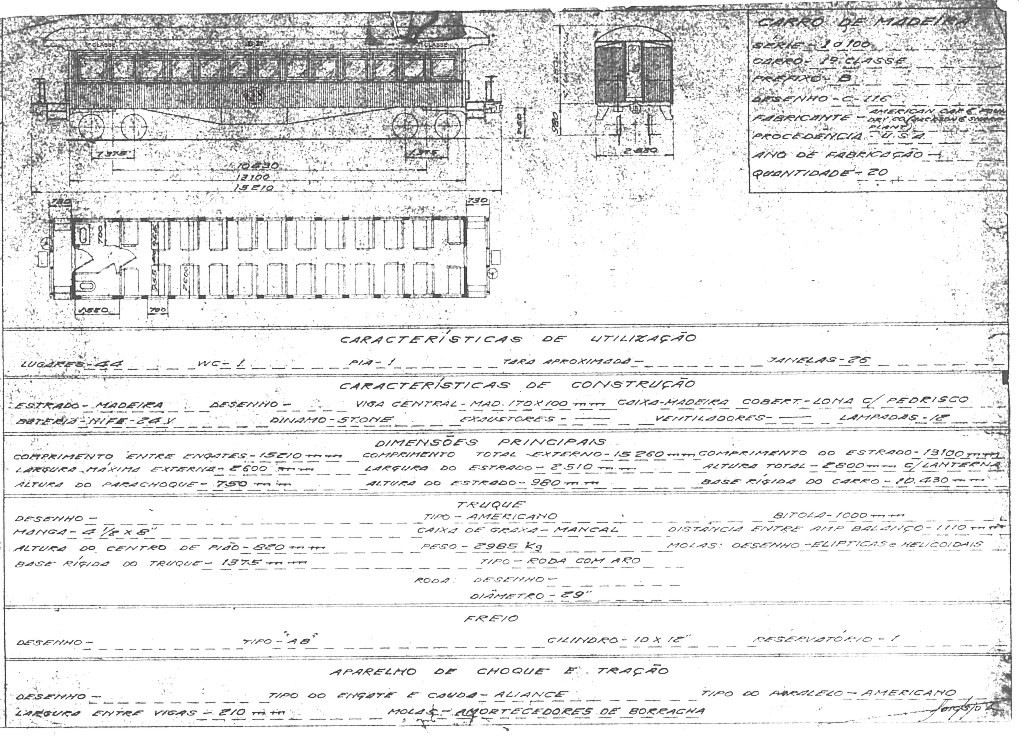 CARRO DE MADEIRA
SERIE - 1 a 100
CARRO - 1ª CLASSE
PREFIXO - B
DESENHO - C-116
FABRICANTE - AMERICAN CAR E
DRY CO (JACKSON E SHARP
PLANT)
PROCEDÊNCIA - U.S.A
ANO DE FABRICAÇÃO -
QUANTIDADE - 20
1ª CLASSE
1ª CLASSE
1.375
1.375
10.430
13100
15210
980
730
730
700
2600
1.550
700
CARACTERÍSTICAS DE UTILIZAÇÃO
LUGARES - 44 WC - 1 PIA - 1 TARA APROXIMADA - JANELAS - 26
CARACTERÍSTICAS DE CONSTRUÇÃO
ESTRADO - MADEIRA DESENHO - VIGA CENTRAL - MAD. 170X100 mm CAIXA - MADEIRA COBERT - LONA C/ PEDRISCO
BATERIA - NIFE - 24 V DINAMO - STONE EXAUSTORES - VENTILADORES - LAMPADAS - 12
DIMENSÕES PRINCIPAIS
COMPRIMENTO ENTRE ENGATES - 15210 mm COMPRIMENTO TOTAL EXTERNO - 15260 mm COMPRIMENTO DO ESTRADO - 13100 mm
LARGURA MÁXIMA EXTERNA - 2600 mm LARGURA DO ESTRADO - 2510 mm ALTURA TOTAL - 2800 mm C/ LANTERNA
ALTURA DO PARACHOQUE - 750 mm ALTURA DO ESTRADO - 980 mm BASE RÍGIDA DO CARRO - 10.430 mm
TRUQUE
DESENHO - TIPO - AMERICANO BITOLA - 1000 mm
MANGA - 4 1/2 x 8" CAIXA DE GRAXA - MANCAL DISTÂNCIA ENTRE AMP BALANÇO - 1110 mm
ALTURA DO CENTRO DE PIÃO - 820 mm PESO - 2985 Kg MOLAS: DESENHO - ELIPTICAS e HELICOIDAIS
BASE RÍGIDA DO TRUQUE - 1375 mm TIPO - RODA COM ARO
RODA: DESENHO -
DIÂMETRO - 29"
FREIO
DESENHO - TIPO - "AB" CILINDRO - 10 X 12" RESERVATÓRIO - 1
APARELHO DE CHOQUE E TRAÇÃO
DESENHO - TIPO DO ENGATE E CAUDA - ALIANCE TIPO DO PARALELO - AMERICANO
LARGURA ENTRE VIGAS - 210 mm MOLAS - AMORTECEDORES DE BORRACHA